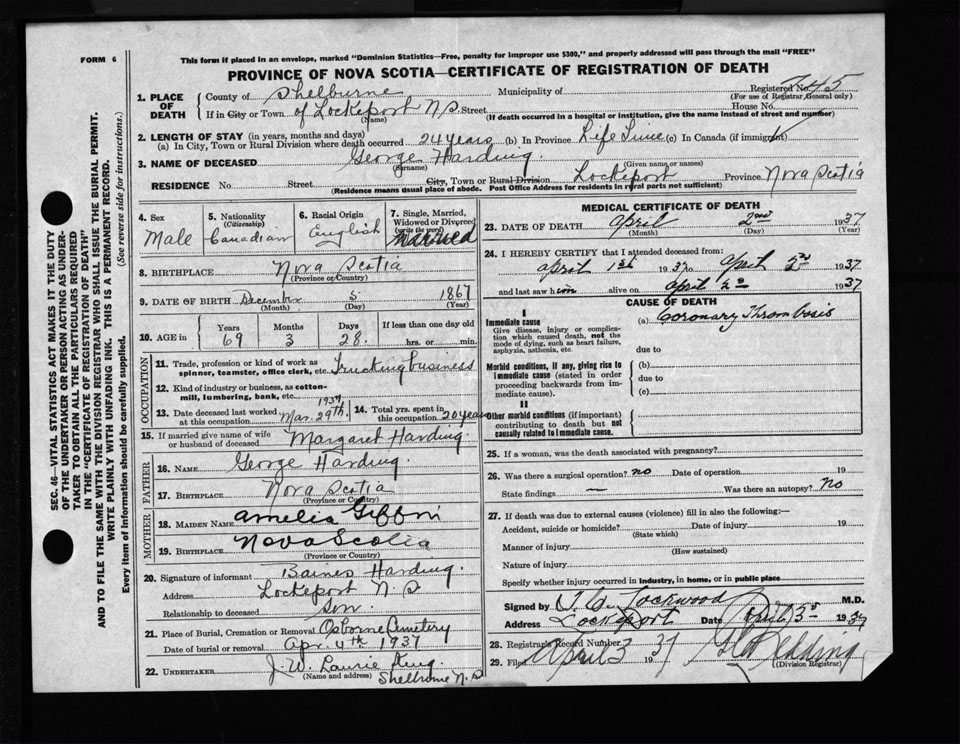 This form if placed in an envelope, marked "Dominion Statistics—Free, penalty for improper use $300," and properly addressed will pass through the mail "FREE"
FORM 6
PROVINCE OF NOVA SCOTIA—CERTIFICATE OF REGISTRATION OF DEATH
SEC. 46—VITAL STATISTICS ACT MAKES IT THE DUTY
OF THE UNDERTAKER OR PERSON ACTING AS UNDER-
TAKER TO OBTAIN ALL THE PARTICULARS REQUIRED
IN THE "CERTIFICATE OF REGISTRATION OF DEATH"
AND TO FILE THE SAME WITH THE DIVISION REGISTRAR WHO SHALL ISSUE THE BURIAL PERMIT.
WRITE PLAINLY WITH UNFADING INK. THIS IS A PERMANENT RECORD.
Every item of information should be carefully supplied. (See reverse side for instructions.)
1. PLACE OF DEATH
County of Shelburne Municipality of Registered No. 745
(For use of Registrar General only)
If in City or Town of Lockeport N.S. Street House No.
(Name) (If death occurred in a hospital or institution, give the name instead of street and number)
2. LENGTH OF STAY (in years, months and days)
(a) In City, Town or Rural Division where death occurred 24 years (b) In Province Life Time (c) In Canada (if immigrant)
3. NAME OF DECEASED George Harding
(Surname) (Given name or names)
RESIDENCE No. Street City, Town or Rural Division Lockeport Province Nova Scotia
(Residence means usual place of abode. Post Office Address for residents in rural parts not sufficient)
4. Sex Male
5. Nationality (Citizenship) Canadian
6. Racial Origin English
7. Single, Married, Widowed or Divorced (write the word) Married
8. BIRTHPLACE Nova Scotia
(Province or Country)
9. DATE OF BIRTH December 5 1867
(Month) (Day) (Year)
10. AGE in Years 69 Months 3 Days 28. If less than one day old hrs. or min.
OCCUPATION
11. Trade, profession or kind of work as spinner, teamster, office clerk, etc. Trucking business
12. Kind of industry or business, as cotton-mill, lumbering, bank, etc.
13. Date deceased last worked at this occupation Mar. 29th. 1937
14. Total yrs. spent in this occupation 20 years
15. If married give name of wife or husband of deceased Margaret Harding.
FATHER
16. NAME George Harding.
17. BIRTHPLACE Nova Scotia
(Province or Country)
MOTHER
18. MAIDEN NAME Amelia
19. BIRTHPLACE Nova Scotia
(Province or Country)
20. Signature of informant Baines Harding.
Address Lockeport N.S
Relationship to deceased Son.
21. Place of Burial, Cremation or Removal Osborne Cemetery
Date of burial or removal Apr. 4th 1937
22. UNDERTAKER J. W. Laurie King.
(Name and address) Shelburne N.S
MEDICAL CERTIFICATE OF DEATH
23. DATE OF DEATH April 2nd 1937
(Month) (Day) (Year)
24. I HEREBY CERTIFY that I attended deceased from:
April 1st 1937 to April 2nd 1937
and last saw him alive on April 2nd 1937
CAUSE OF DEATH
I
Immediate cause (a) Coronary Thrombosis
Give disease, injury or complication which caused death, not the mode of dying, such as heart failure, asphyxia, asthenia, etc.
due to
Morbid conditions, if any, giving rise to immediate cause (stated in order proceeding backwards from immediate cause). (b)
due to
(c)
II
Other morbid conditions (if important) contributing to death but not causally related to immediate cause.
25. If a woman, was the death associated with pregnancy?
26. Was there a surgical operation? no Date of operation 19
State findings — Was there an autopsy? No
27. If death was due to external causes (violence) fill in also the following:—
Accident, suicide or homicide? Date of injury 19
(State which)
Manner of injury
(How sustained)
Nature of injury
Specify whether injury occurred in industry, in home, or in public place
Signed by Lockwood M.D.
Address Lockeport Date April 3rd 1937
28. Registrar's Record Number
29. Filed April 3 1937 Redding
(Division Registrar)